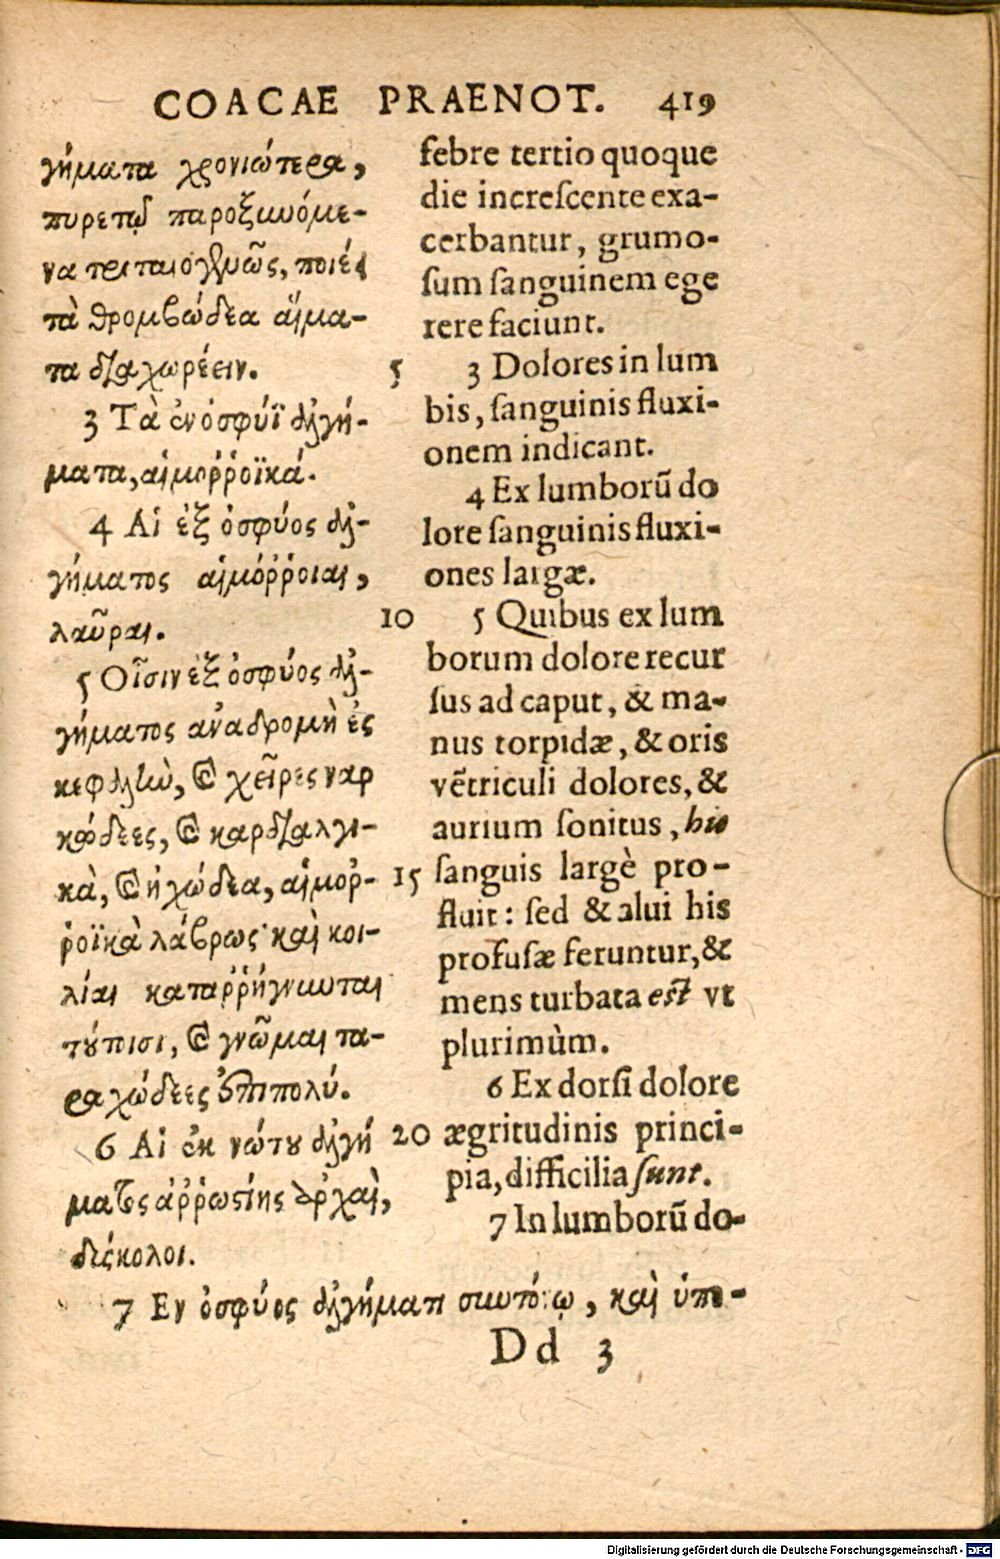 COACAE PRAENOT. 419
γήματα χρονιώτερα,
πυρετῷ παροξυνόμε-
να τριταιογενῶς, ποιέει
τὰ θρομβώδεα αἵμα-
τα διαχωρέειν.
3 Τὰ ἐν ὀσφύϊ ἀλγή-
ματα, αἱμορῥοϊκά.
4 Αἱ ἐξ ὀσφύος ἀλ-
γήματος αἱμόῤῥοιαι,
λαῦραι.
5 Οἷσιν ἐξ ὀσφύος ἀλ-
γήματος ἀναδρομὴ ἐς
κεφαλὴν, καὶ χεῖρες ναρ
κώδεες, καὶ καρδιαλγι-
κὰ, καὶ ἠχώδεα, αἱμοῤ-
ῥοϊκὰ λάβρως· καὶ κοι-
λίαι καταῤῥήγνυνται
τούτοισι, καὶ γνῶμαι τα-
ραχώδεες ἐπιπολύ.
6 Αἱ ἐκ νώτου ἀλγή
ματος ἀῤῥωστίης ἀρχαὶ,
δύσκολοι.
7 Εν ὀσφύος ἀλγήματι συντόνῳ, καὶ ὑπο-
febre tertio quoque
die increſcente exa-
cerbantur, grumo-
ſum ſanguinem ege
rere faciunt.
5 3 Dolores in lum
bis, ſanguinis fluxi-
onem indicant.
4 Ex lumborũ do
lore ſanguinis fluxi-
ones largæ.
10 5 Quibus ex lum
borum dolore recur
ſus ad caput, & ma-
nus torpidæ, & oris
vẽtriculi dolores, &
aurium ſonitus, his
15 ſanguis largè pro-
fluit: ſed & alui his
profuſæ feruntur, &
mens turbata eſt vt
plurimùm.
6 Ex dorſi dolore
20 ægritudinis princi-
pia, difficilia ſunt.
7 In lumborũ do-
Dd 3
Digitalisierung gefördert durch die Deutsche Forschungsgemeinschaft - DFG